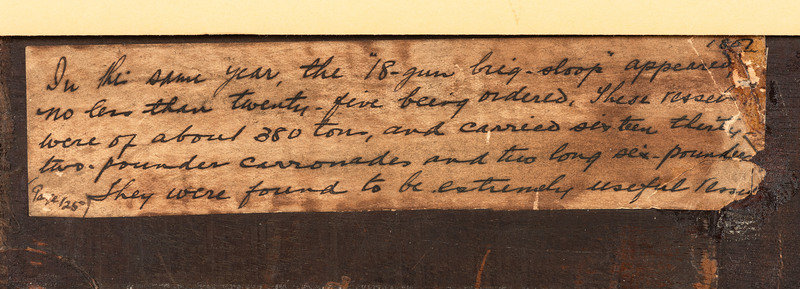 1802
In this same year, the "18-gun brig-sloop" appeared
no less than twenty-five being ordered. These vessel
were of about 380 tons, and carried sixteen thirty-
two-pounder carronades and two long six-pounders
They were found to be extremely useful vessel
Page 125